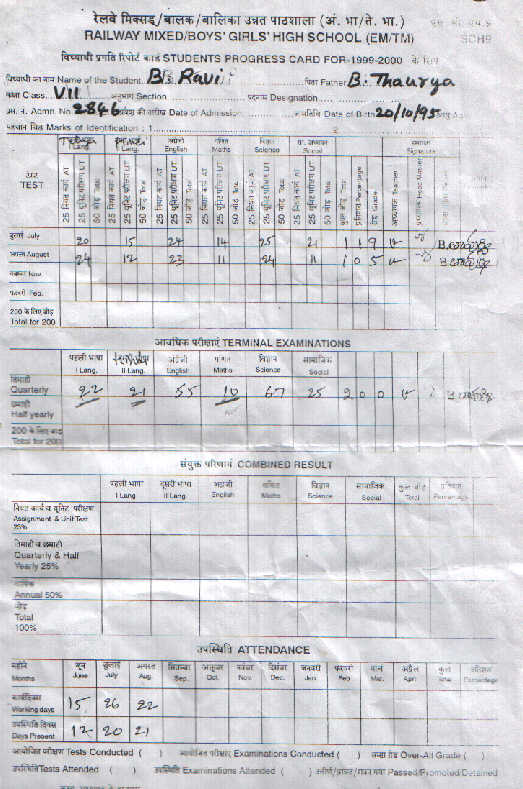 रेलवे मिक्सड/बालक/बालिका उन्नत पाठशाला (अं. भा/ते. भा.)
RAILWAY MIXED/BOYS' GIRLS' HIGH SCHOOL (EM/TM) SCH9
विद्यार्थी प्रगति रिपोर्ट कार्ड STUDENTS PROGRESS CARD FOR-1999-2000 के लिए
विद्यार्थी का नाम Name of the Student. B. Ravi पिता Father B. Thaurya
कक्षा Class VII अनुभाग Section पदनाम Designation
प्र. सं. Admn. No. 2846 प्रवेश की तारीख Date of Admission जन्म तिथि Date of Birth 20/10/95
पहचान चिन्ह Marks of Identification : 1 2
I Lang. II Lang. अंग्रेजी English गणित Maths विज्ञान Science सा. अध्ययन Social हस्ताक्षर Signature
जांच TEST 25 नियत कार्य AT 25 यूनिट परीक्षा UT 50 जोड़ Total 25 नियत कार्य AT 25 यूनिट परीक्षा UT 50 जोड़ Total 25 नियत कार्य AT 25 यूनिट परीक्षा UT 50 जोड़ Total 25 नियत कार्य AT 25 यूनिट परीक्षा UT 50 जोड़ Total 25 नियत कार्य AT 25 यूनिट परीक्षा UT 50 जोड़ Total 25 नियत कार्य AT 25 यूनिट परीक्षा UT 50 जोड़ Total कुल जोड़ Total प्रतिशत Percentage ग्रेड Grade अध्यापक Teacher Head Master
जुलाई July 20 15 24 14 25 21 119
अगस्त August 24 12 23 11 24 11 105
नवम्बर Nov
फरवरी Feb.
200 के लिए जोड़
Total for 200
आवधिक परीक्षाएं TERMINAL EXAMINATIONS
पहली भाषा I Lang. II Lang. अंग्रेजी English गणित Maths विज्ञान Science सामाजिक Social
तिमाही
Quarterly 22 21 55 10 67 25 200
छमाही
Half yearly
200 के लिए जोड़
Total for 200
संयुक्त परिणाम COMBINED RESULT
पहली भाषा I Lang दूसरी भाषा II Lang अंग्रेजी English गणित Maths विज्ञान Science सामाजिक Social कुल जोड़ Total प्रतिशत Percentage
नियत कार्य व यूनिट परीक्षा
Assignment & Unit Test
25%
तिमाही व छमाही
Quarterly & Half
Yearly 25%
वार्षिक
Annual 50%
जोड़
Total
100%
उपस्थिति ATTENDANCE
महीने Months जून June जुलाई July अगस्त Aug. सितम्बर Sep. अक्तूबर Oct. नवंबर Nov. दिसंबर Dec. जनवरी Jan फरवरी Feb मार्च Mar. अप्रैल April कुल Total प्रतिशत Percentage
कार्यदिवस
Working days 15 26 22
उपस्थिति दिवस
Days Present 12 20 21
आयोजित परीक्षण Tests Conducted ( ) आयोजित परीक्षाएं Examinations Conducted ( ) कक्षा ग्रेड Over-All Grade ( )
उपस्थिति Tests Attended ( ) उपस्थिति Examinations Attended ( ) Passed/Promoted/Detained